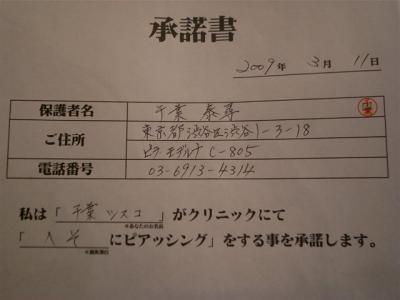 承諾書
2009年 3月 11日
保護者名 千葉 泰尋
ご住所 東京都渋谷区渋谷1-3-18
ビラ モデルナ C-805
電話番号 03-6913-4314
私は「千葉 ツスコ」がクリニックにて
※あなたのお名前
「へそ にピアッシング」をする事を承諾します。